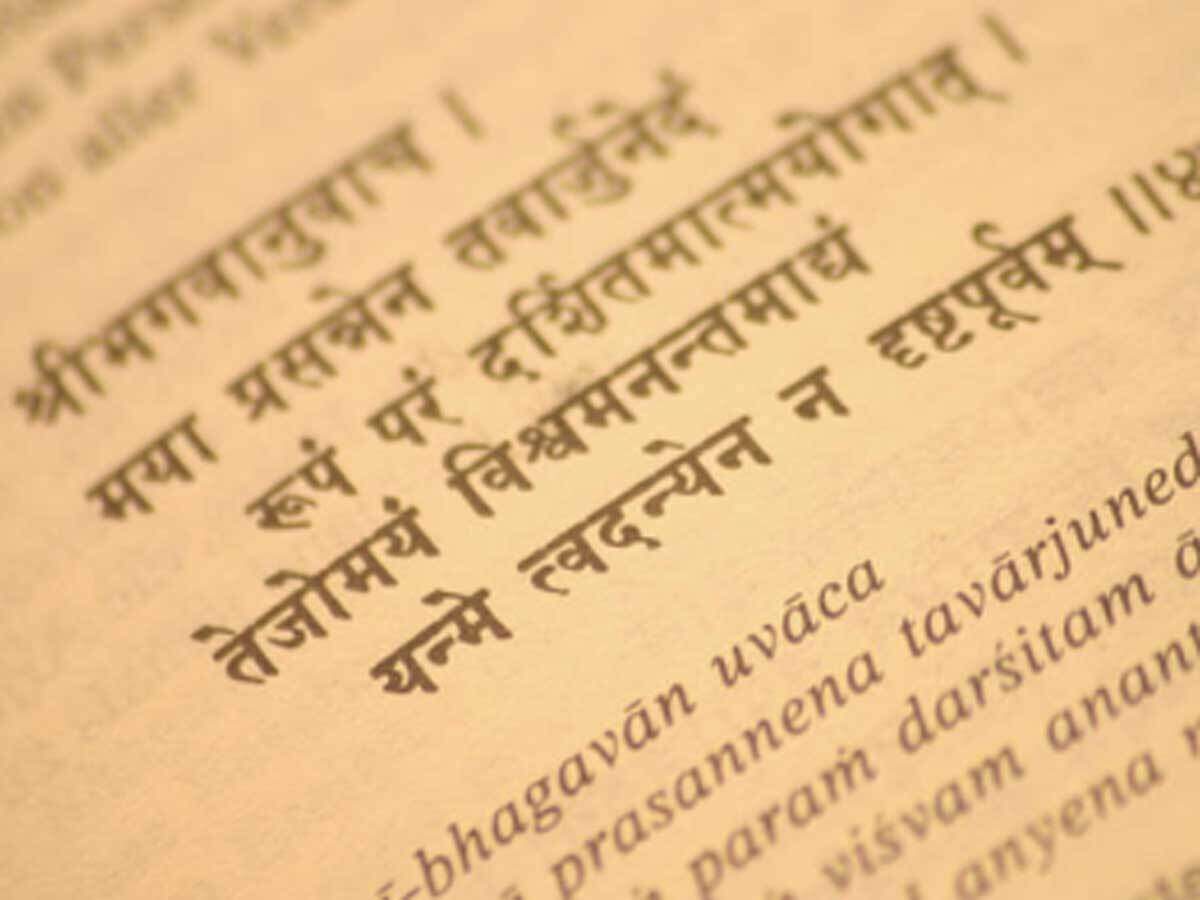 on aller
श्रीभगवानुवाच ।
मया प्रसन्नेन तवार्जुनेदं
रूपं परं दर्शितमात्मयोगात् ।
तेजोमयं विश्वमनन्तमाद्यं
यन्मे त्वदन्येन न दृष्टपूर्वम् ॥
-bhagavān uvāca
prasannena tavārjuned
paraṁ darśitam ā
viśvam anant
anyena